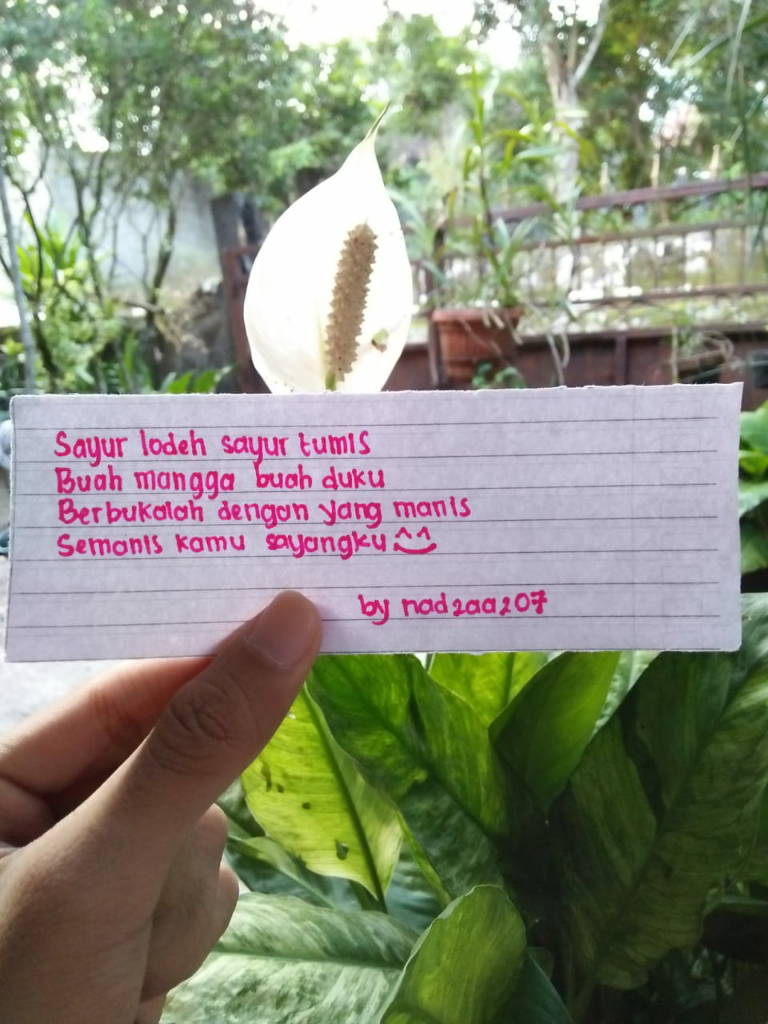 Sayur lodeh sayur tumis
Buah mangga buah duku
Berbukalah dengan yang manis
Semanis kamu sayangku ^^
by nad2aa207